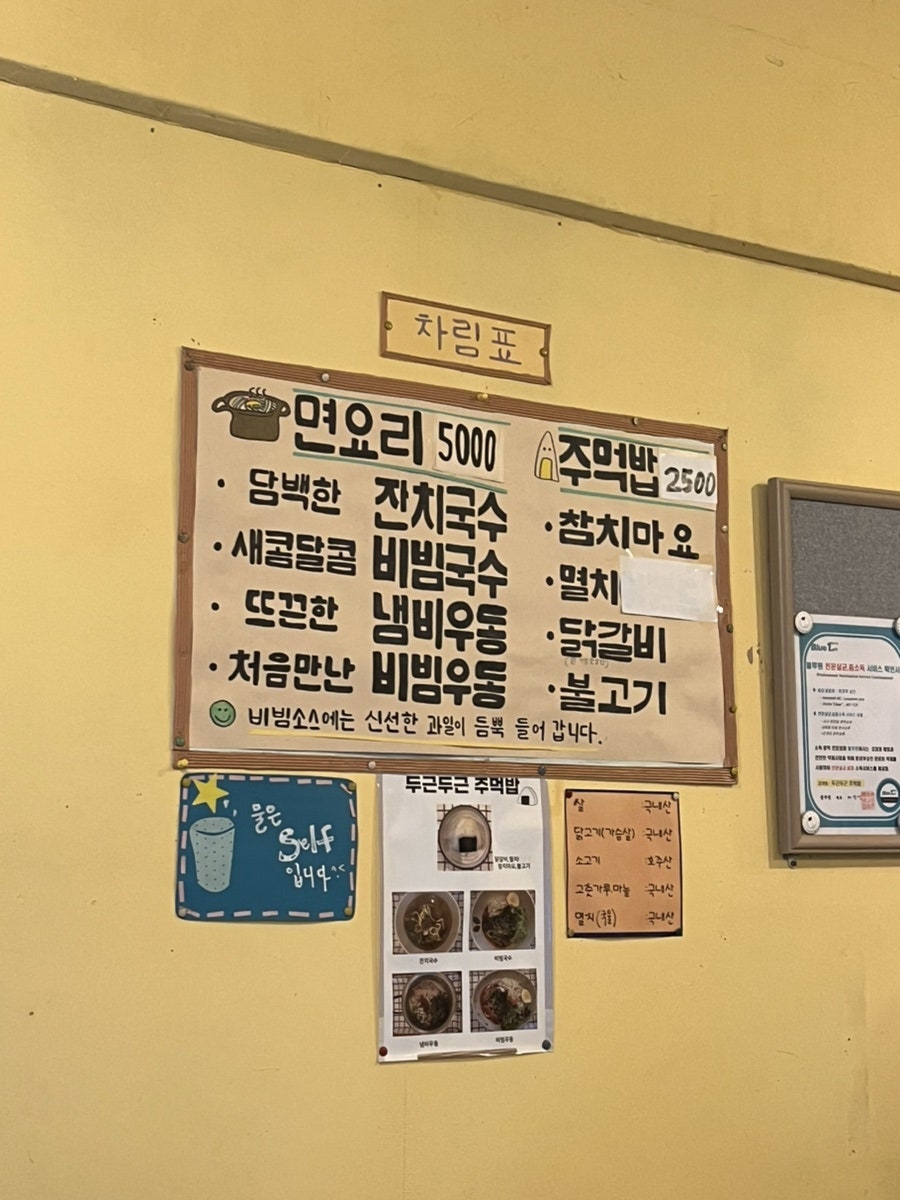 차림표
면요리 5000
· 담백한 잔치국수
· 새콤달콤 비빔국수
· 뜨끈한 냄비우동
· 처음만난 비빔우동
비빔소스에는 신선한 과일이 듬뿍 들어 갑니다.
주먹밥 2500
· 참치마요
· 멸치
· 닭갈비
· 불고기
물은
Self
입니다^^
두근두근 주먹밥
닭갈비, 멸치
참치마요, 불고기
잔치국수
비빔국수
냄비우동
비빔우동
쌀 :국내산
닭고기(가슴살) :국내산
소고기 :호주산
고춧가루,마늘 :국내산
멸치(국물) :국내산
Blue
전문살균,소독 서비스 확인서
두근두근 주먹밥